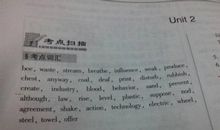 Unit 2
考点扫描
考点词汇
bee, waste, stream, breathe, influence, weak, produce,
chest, anyway, coal, deaf, print, disturb, rubbish,
create, industry, blood, behavior, sand, prevent,
although, law, rise, level, plastic, suppose, nod,
agreement, shake, action, technology, electric, wheel,
steel, towel, offer